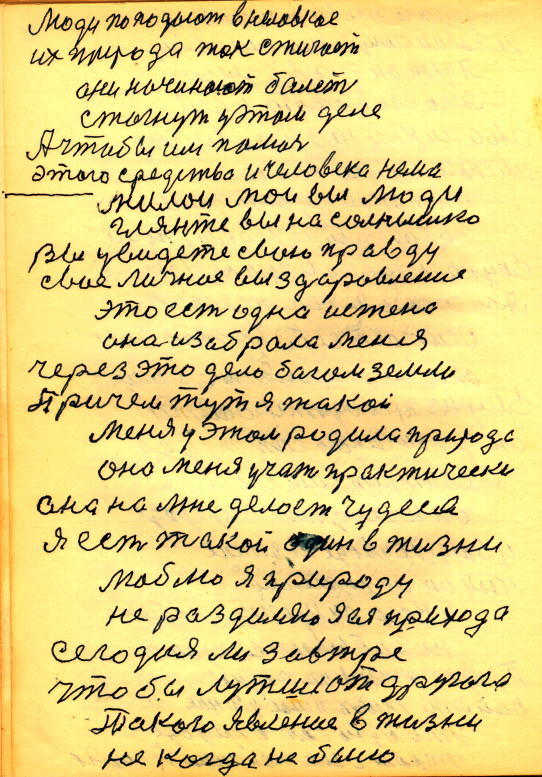 Люди попадают в неловкое
их природа так стигает
они начинают балеть
стогнут у этом деле
А чтобы им памоч
этого средства и человека нема
милои мои вы люди
гляньте вы на солнышко
вы увидете свою правду
свое личное выздаровление
это ест одна истена
она изабрала меня
через это дело багом земли
Причем тут я такой
меня у этом родила природа
она меня учат практически
она на мне делает чудеса
я ест такой один в жизни
люблю я природу
не разделяю я ея прихода
сегодня ли завтре
что бы лутше от другога
Такого явление в жизни
не когда не было